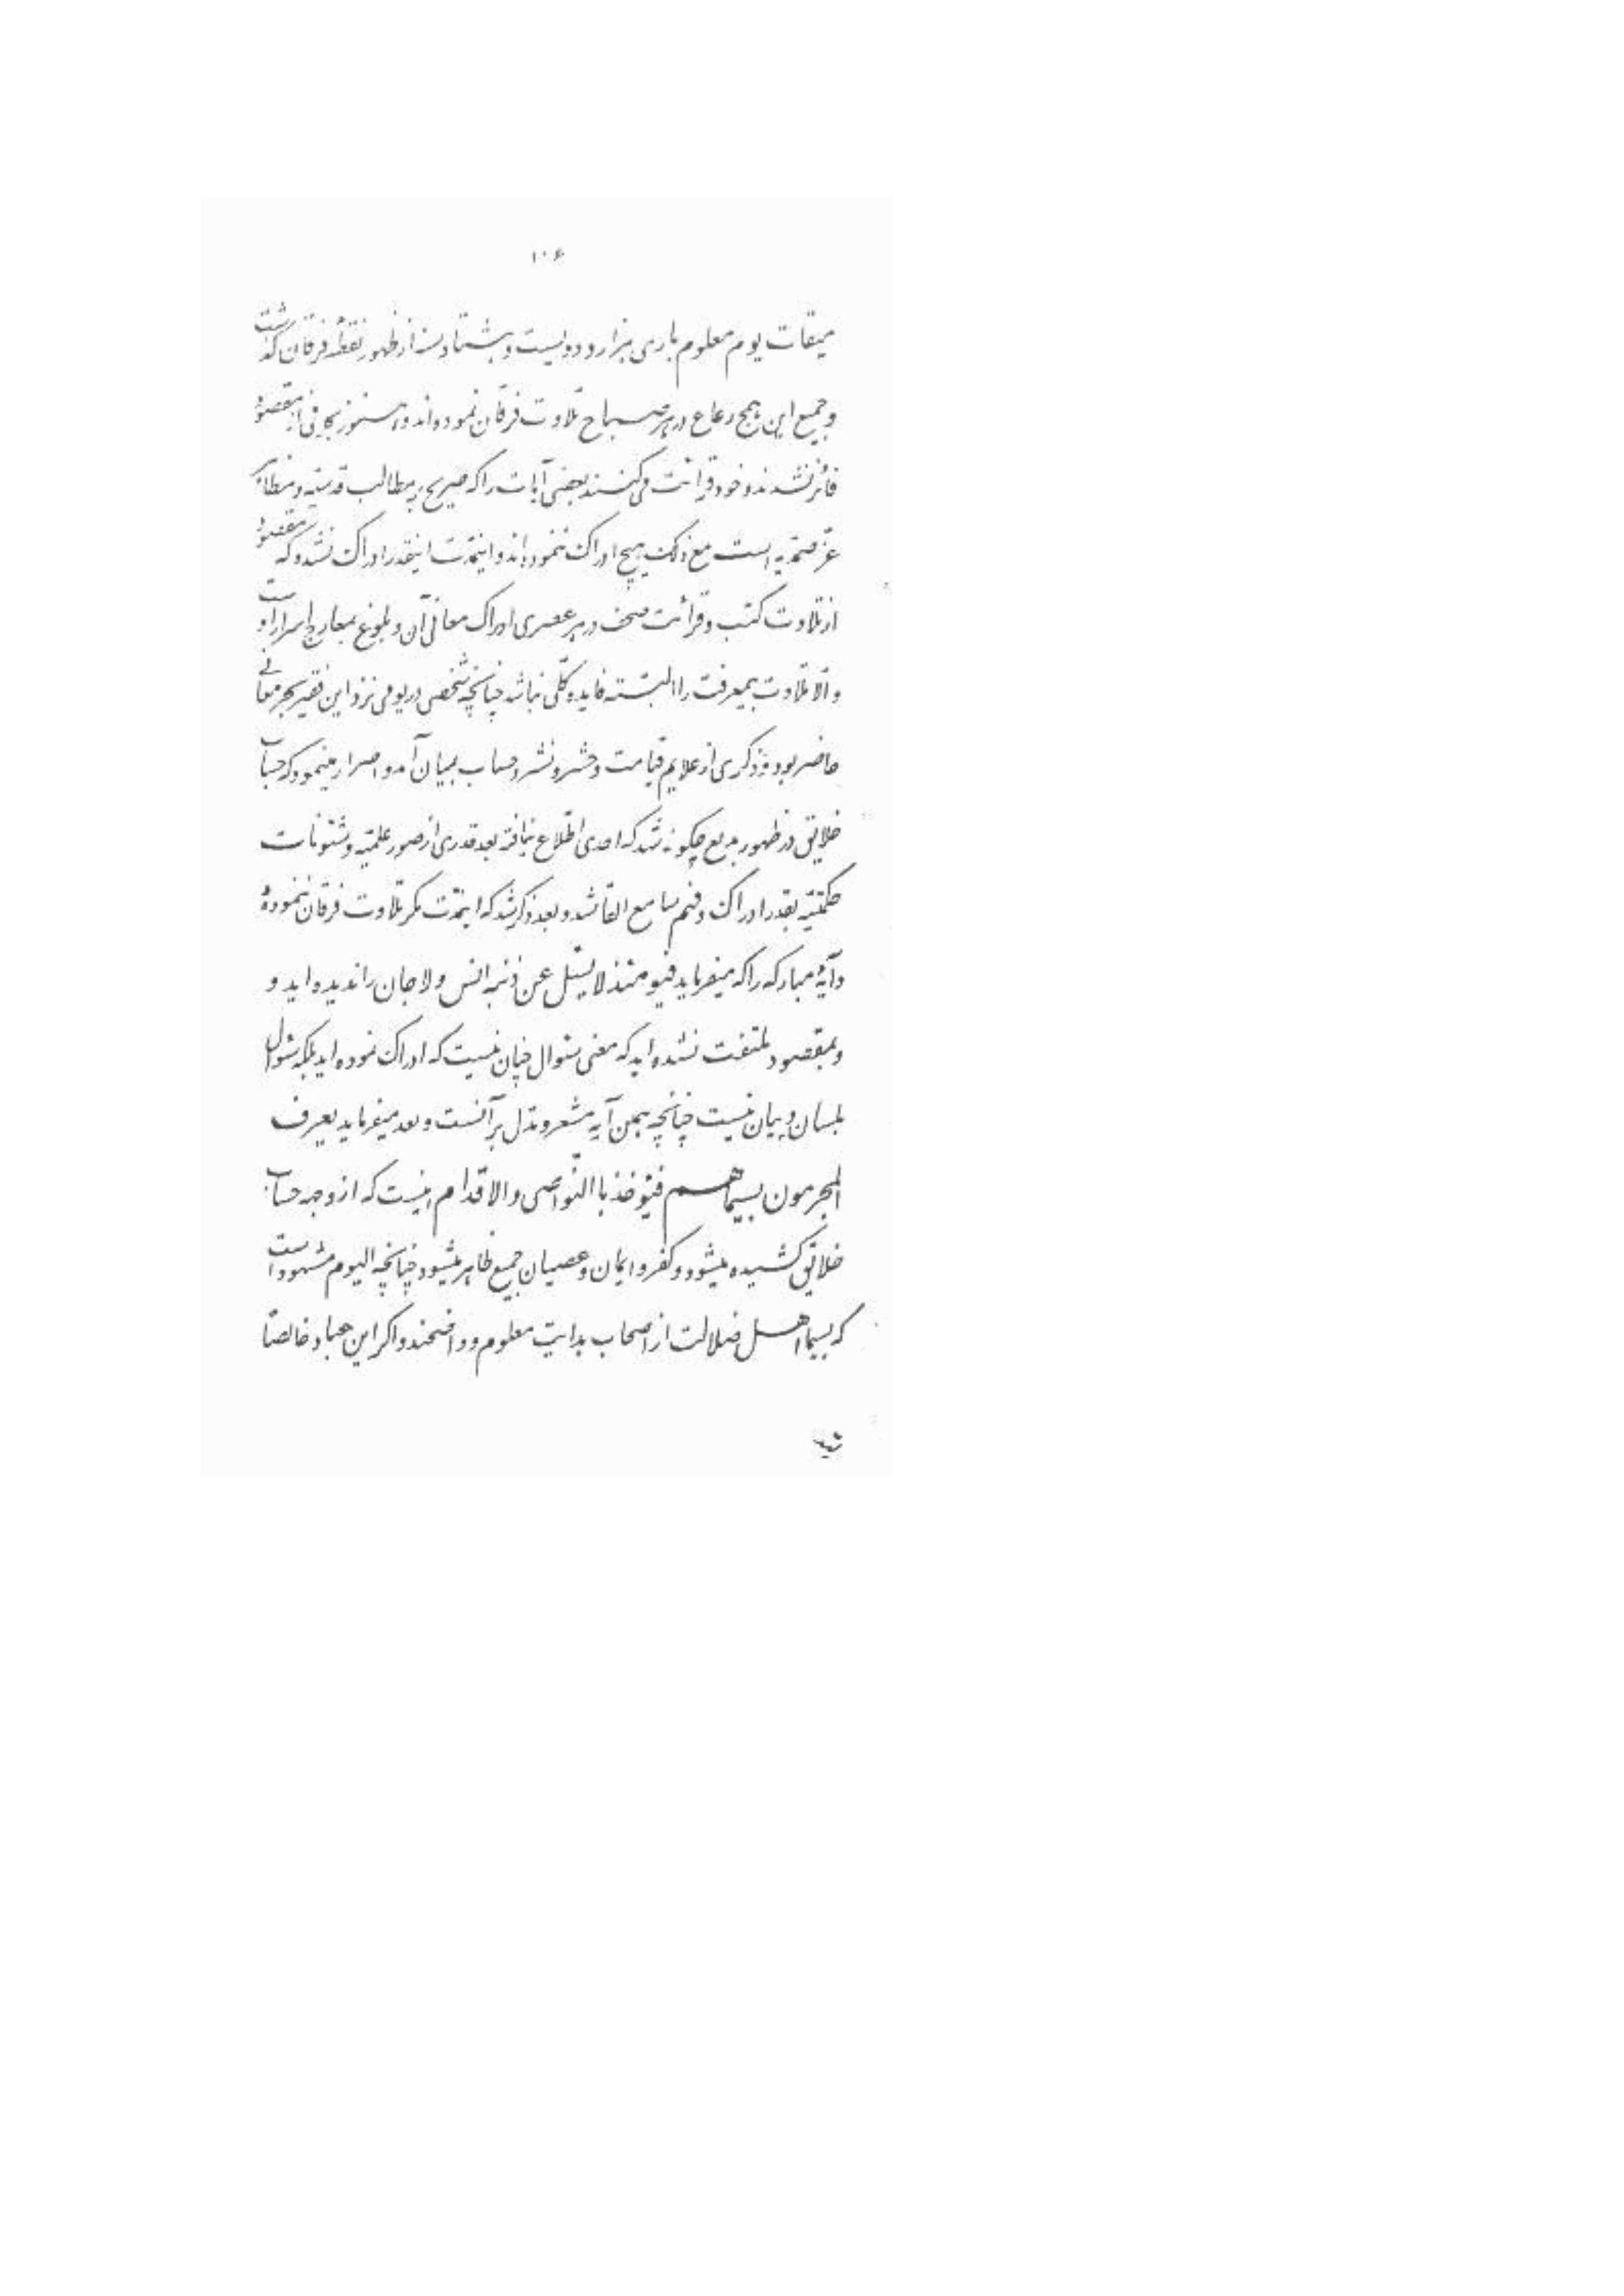 ۱۰۶
میقات یوم معلوم باری هزار و دویست و هشتاد سنه از ظهور نقطهٔ فرقان گذشت
و جمیع این همج رعاع در هر صباح تلاوت فرقان نموده‌اند و هنوز بحرفی از مقصود
فائز نشدند و خود قرائت می کنند بعضی آیات را که صریح بر مطالب قدسیّه و مظاهر
عزّ صمدیّه است مع ذلک هیچ ادراک ننموده‌اند و اینمدّت اینقدر ادراک نشد که مقصود
از تلاوت کتب و قرائت صحف در هر عصری ادراک معانی آن و بلوغ بمعارج اسرار آن است
و الّا تلاوت بیمعرفت را البتّه فایده کلّی نباشد چنانچه شخصی در یومی نزد این فقیر بحر معانی
حاضر بود و ذکری از علایم قیامت و حشر و نشر و حساب بمیان آمد و اصرار مینمود که حساب
خلایق در ظهور بدیع چگونه شد که احدی اطّلاع نیافته بعد قدری از صور علمیّه و شئونات
حکمتیّه بقدر ادراک و فهم سامع القا شد و بعد ذکر شد که اینمدّت مگر تلاوت فرقان ننموده
و آیهٔ مبارکه را که میفرماید فیومئذ لا یسئل عن ذنبه انس و لا جان را ندیده اید و
و بمقصود ملتفت نشده اید که معنی سئوال چنان نیست که ادراک نموده اید بلکه سئوال
بلسان و بیان نیست چنانچه همین آیه مشعر و مدل بر آنست و بعد میفرماید یعرف
المجرمون بسیماهم فیؤخذ باالنّواصی و الاقدام اینست که از وجه حساب
خلائق کشیده میشود و کفر و ایمان و عصیان جمیع ظاهر میشود چنانچه الیوم مشهود است
که بسیما اهل ضلالت از اصحاب هدایت معلوم و واضحند و اگر این عباد خالصاً